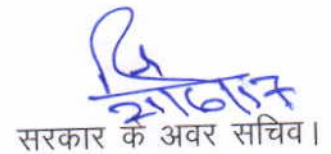 21/6/17
सरकार के अवर सचिव।